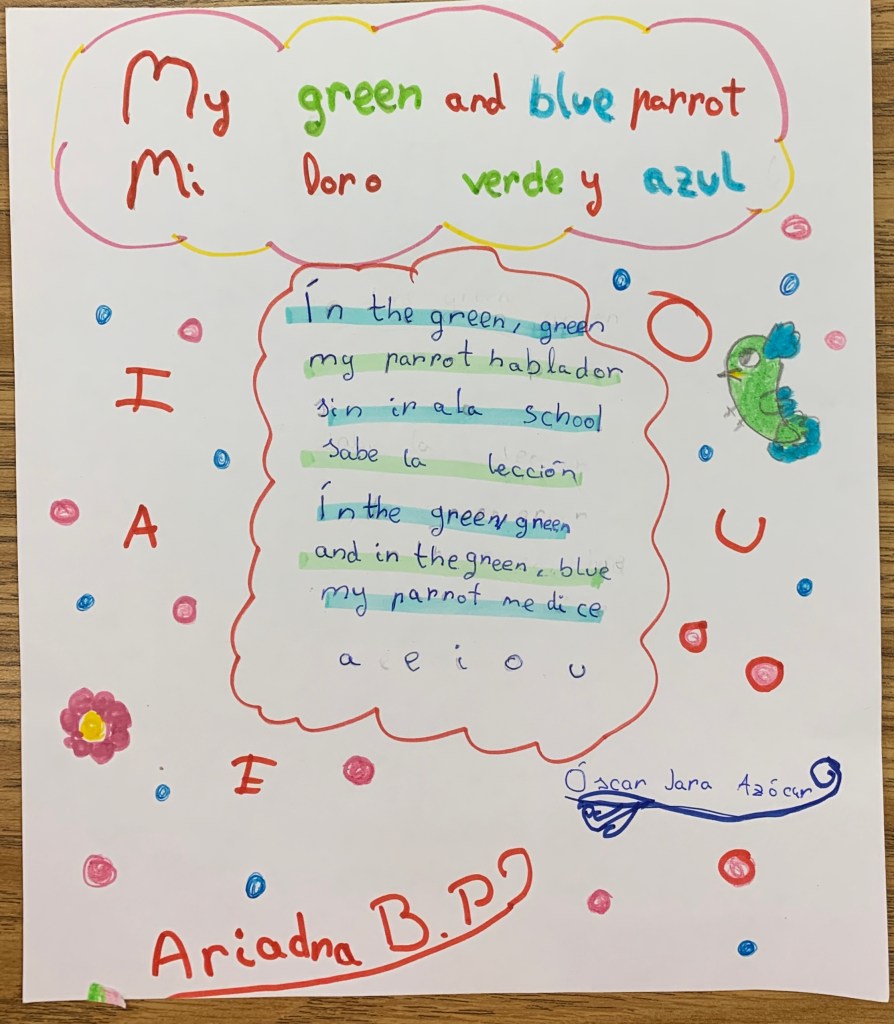 My green and blue parrot
Mi loro verde y azul
Ín the green, green
my parrot hablador
sin ir a la school
sabe la lección
Ín the green, green
and in the green, blue
my parrot me dice
a e i o u
O
I
A
U
E
Óscar Jara Azócar
Ariadna B.P